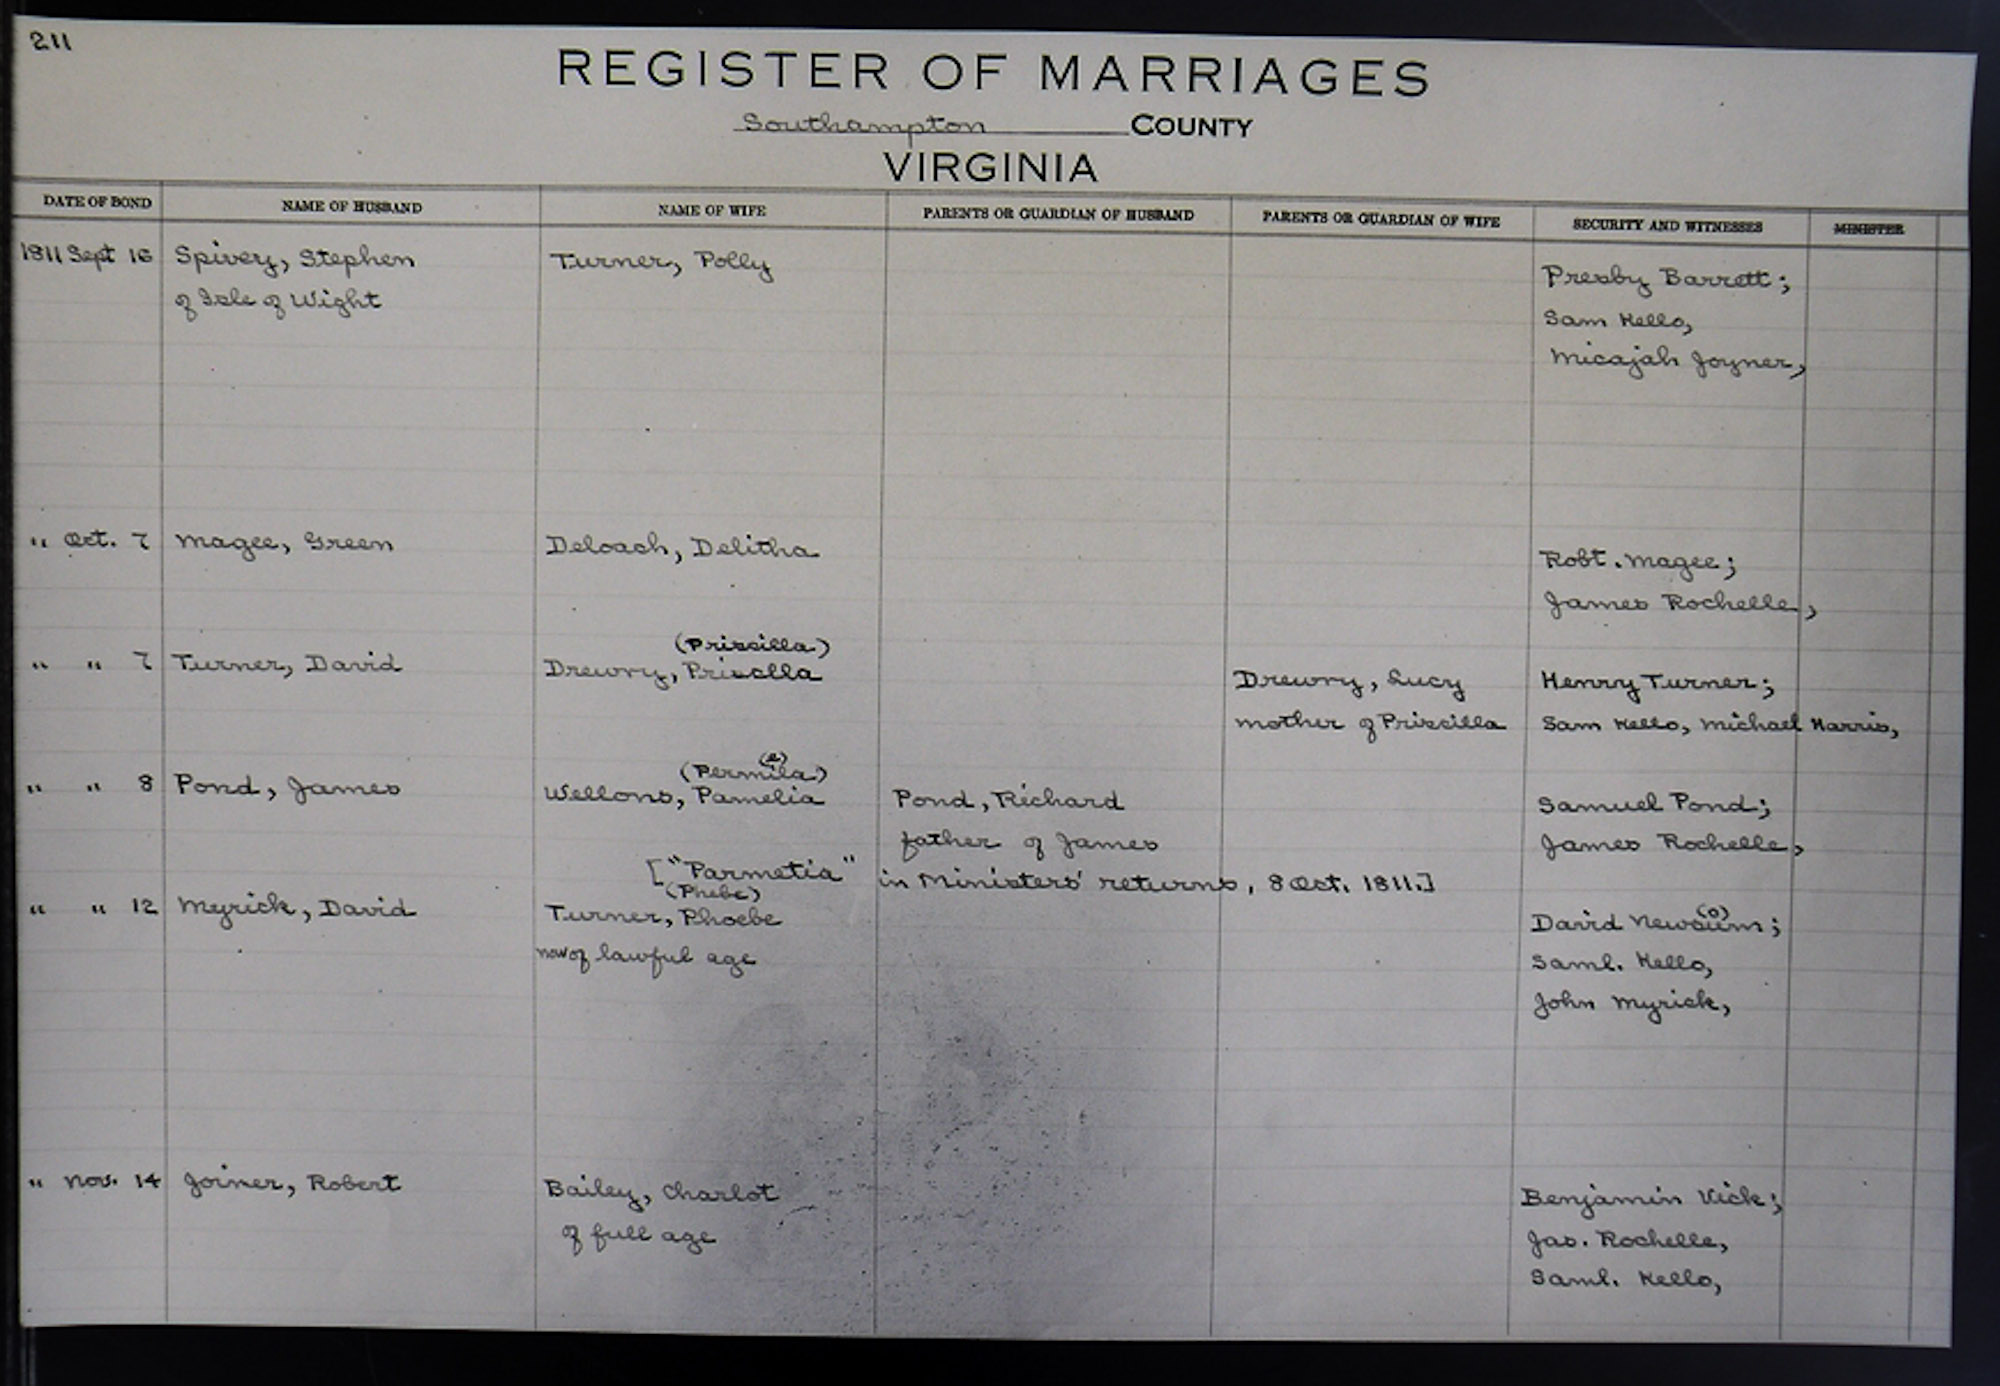 211
REGISTER OF MARRIAGES
Southampton COUNTY
VIRGINIA
DATE OF BOND NAME OF HUSBAND NAME OF WIFE PARENTS OR GUARDIAN OF HUSBAND PARENTS OR GUARDIAN OF WIFE SECURITY AND WITNESSES MINISTER
1811 Sept 16 Spivey, Stephen Turner, Polly
Presby Barrett;
of Isle of Wight
Sam Kello,
Micajah Joyner,
" Oct. 7 Magee, Green Deloach, Delitha
Robt. Magee;
James Rochelle,
(Priscilla)
" " 7 Turner, David Drewry, Prisclla
Drewry, Lucy Henry Turner;
mother of Priscilla Sam Kello, Michael Harris,
(e)
(Permila)
" " 8 Pond, James Wellons, Pamelia Pond, Richard Samuel Pond;
father of James James Rochelle,
["Parmetia" in Ministers' returns, 8 Oct. 1811.]
(Phebe)
" " 12 Myrick, David Turner, Phoebe
(o)
David Newsum;
now of lawful age Saml. Kello,
John Myrick,
" Nov. 14 Joiner, Robert Bailey, Charlot Benjamin Vick;
of full age Jas. Rochelle,
Saml. Kello,